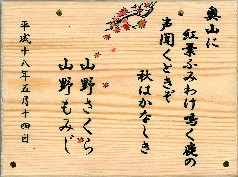 奥山に
紅葉ふみわけ鳴く鹿の
声聞くときぞ
秋はかなしき
山野さくら
山野もみじ
平成十八年五月十四日